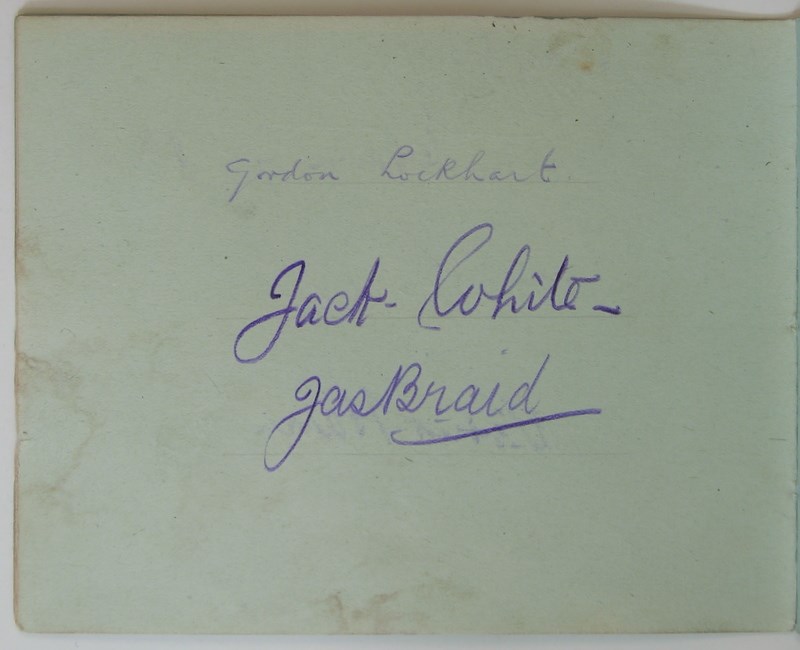 Gordon Lockhart
Jack - White -
Jas Braid